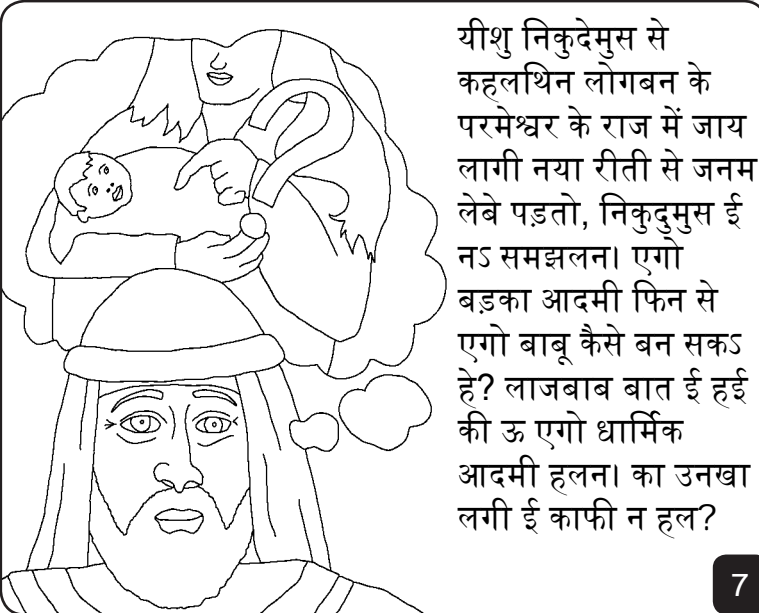 यीशु निकुदेमुस से
कहलथिन लोगबन के
परमेश्वर के राज में जाय
लागी नया रीती से जनम
लेबे पड़तो, निकुदुमुस ई
नऽ समझलन। एगो
बड़का आदमी फिन से
एगो बाबू कैसे बन सकऽ
हे? लाजबाब बात ई हई
की ऊ एगो धार्मिक
आदमी हलन। का उनखा
लगी ई काफी न हल?
7